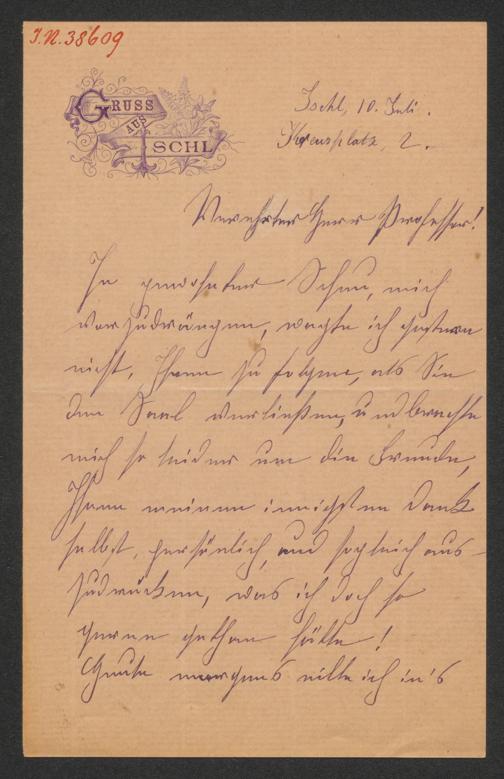 I.N. 38609
GRUSS
AUS
ISCHL
Ischl, 10. Juli.
Kreuzplatz, 2.
Verehrter Herr Professor!
In gewohnter Scheu, mich
vorzudrängen, wagte ich gestern
nicht, Ihnen zu folgen, als Sie
den Saal verließen, und brachte
mich so leider um die Freude,
Ihnen meinen innigsten Dank
selbst, persönlich, und sogleich aus-
zudrücken, was ich doch so
gerne gethan hätte!
Heute morgens eilte ich in's